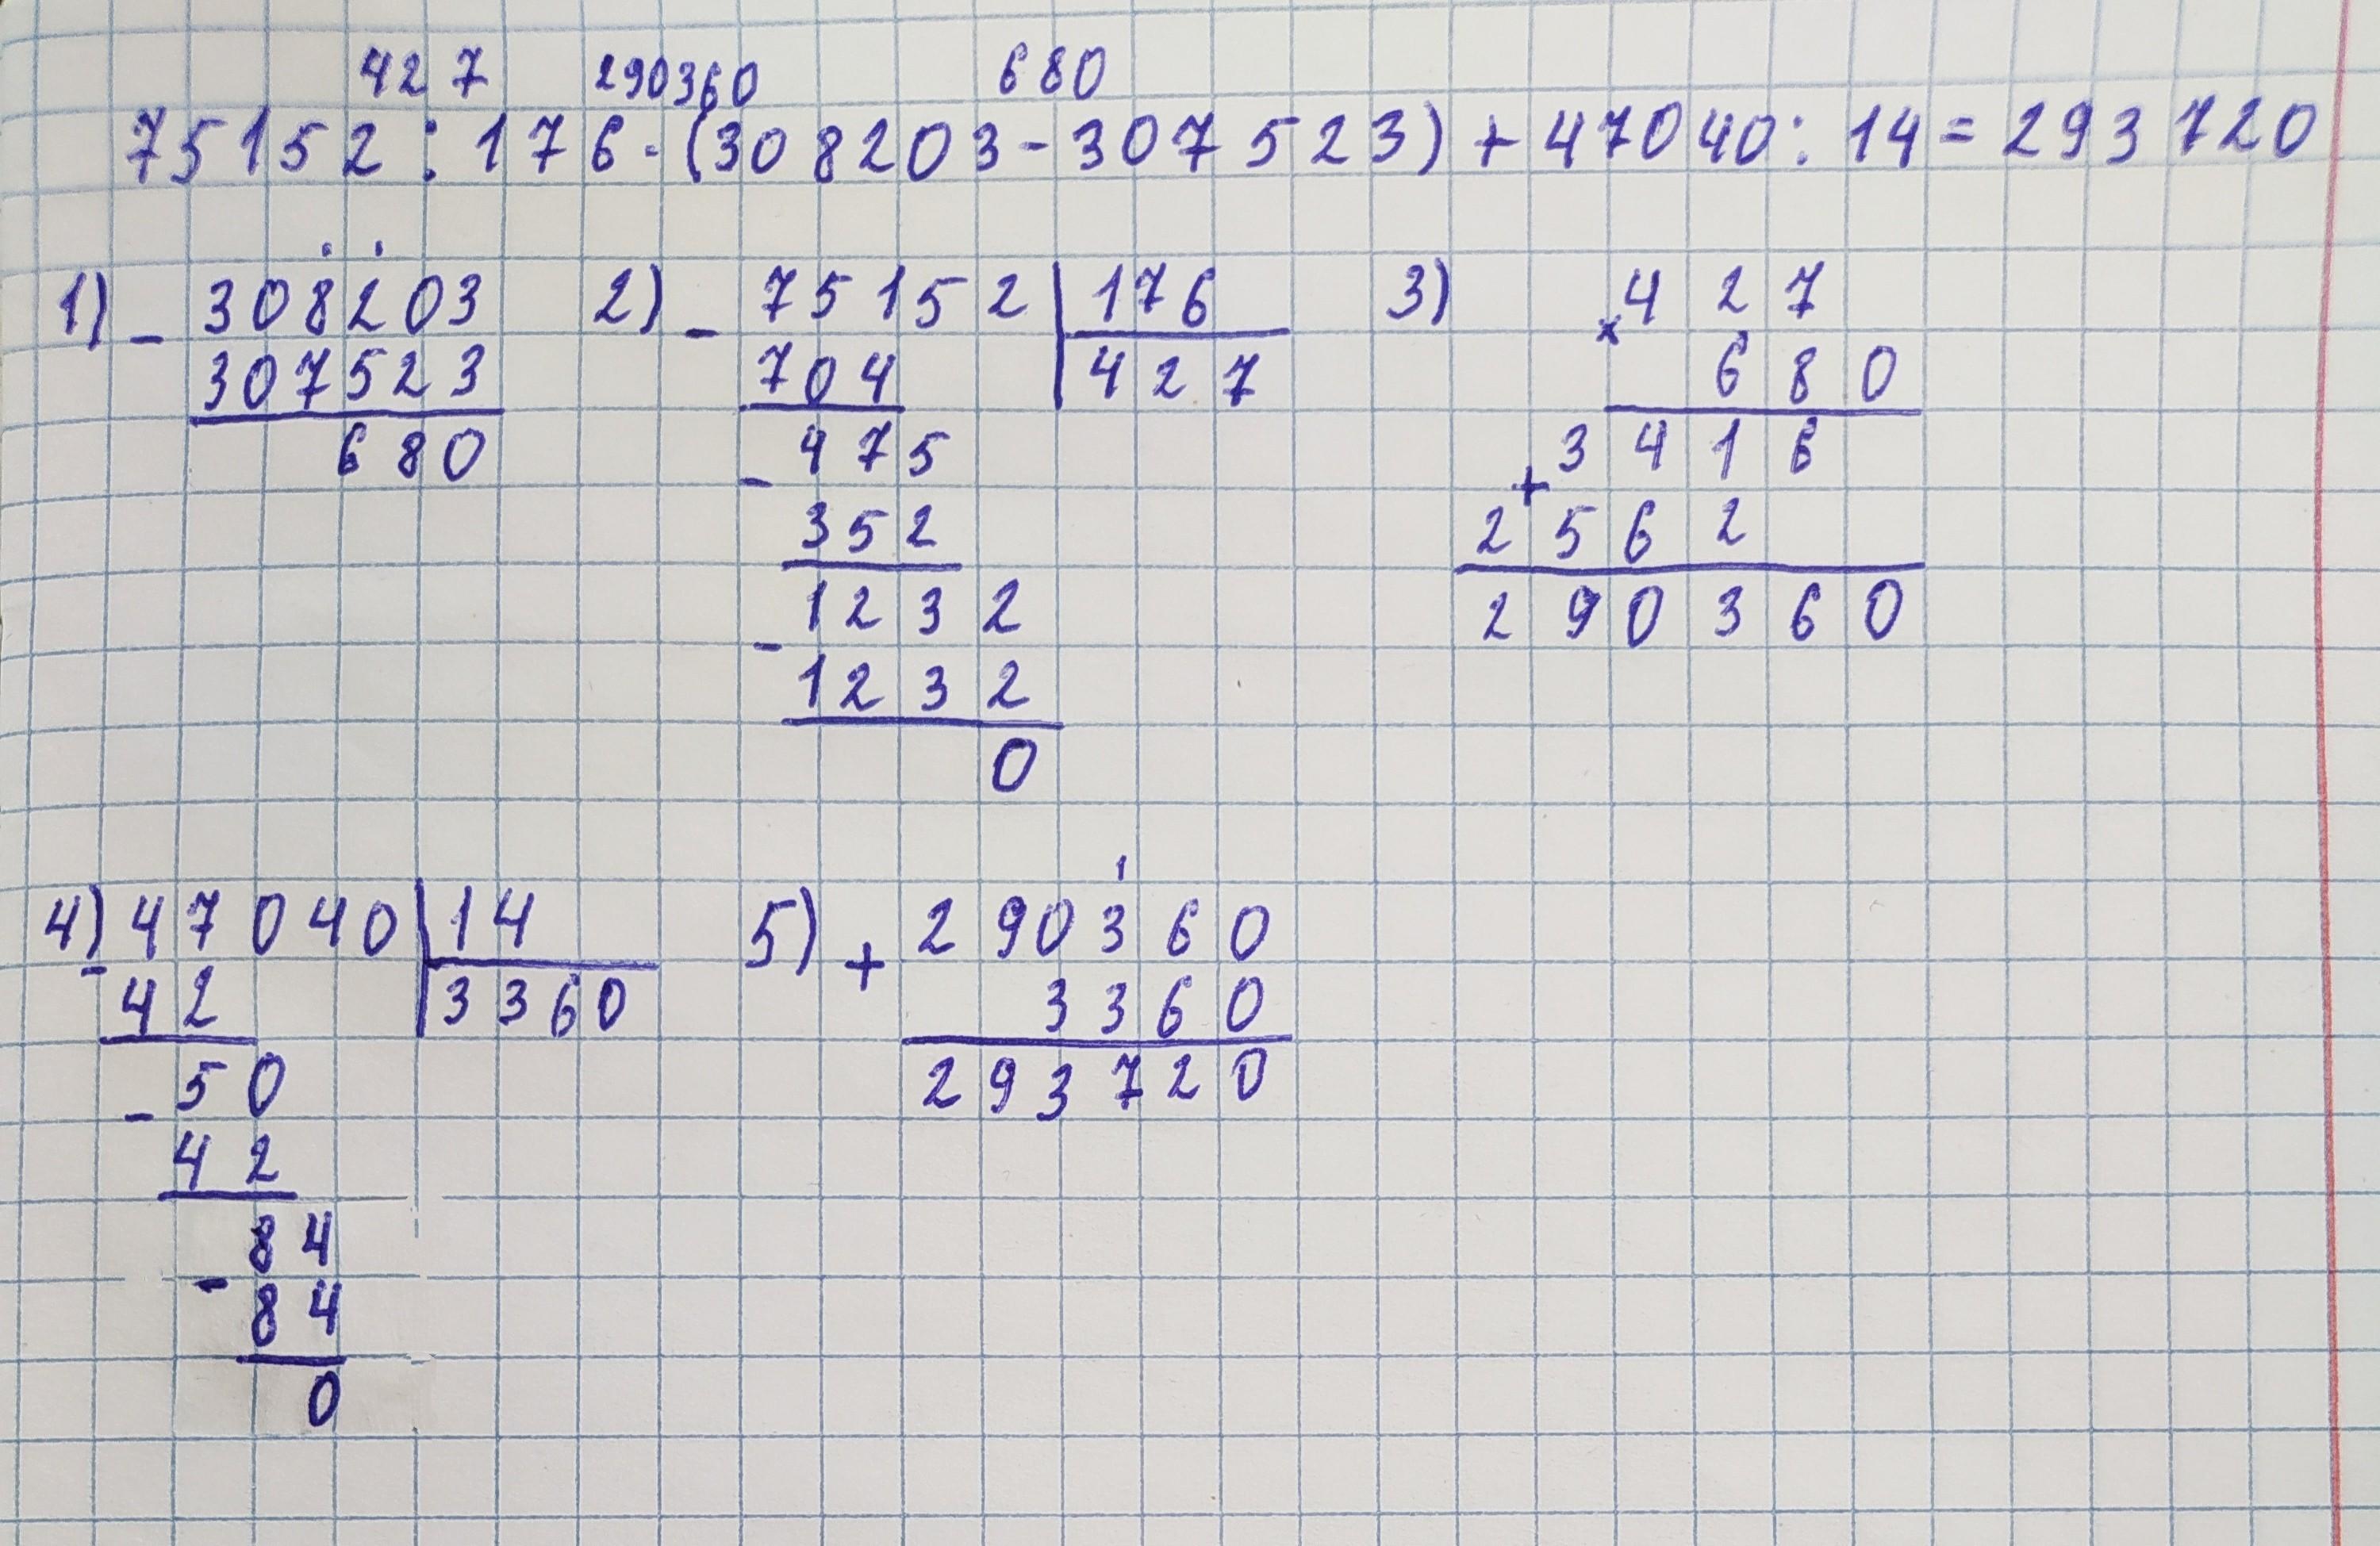 427 290360 680
75152 : 176 · (308203 - 307523) + 47040 : 14 = 293720
1) - 308203
307523
680
2) - 75152 | 176
704 | 427
- 475
352
- 1232
1232
0
3) × 427
680
+ 3416
2562
290360
4) - 47040 | 14
42 | 3360
- 50
42
- 84
84
0
1
5) + 290360
3360
293720